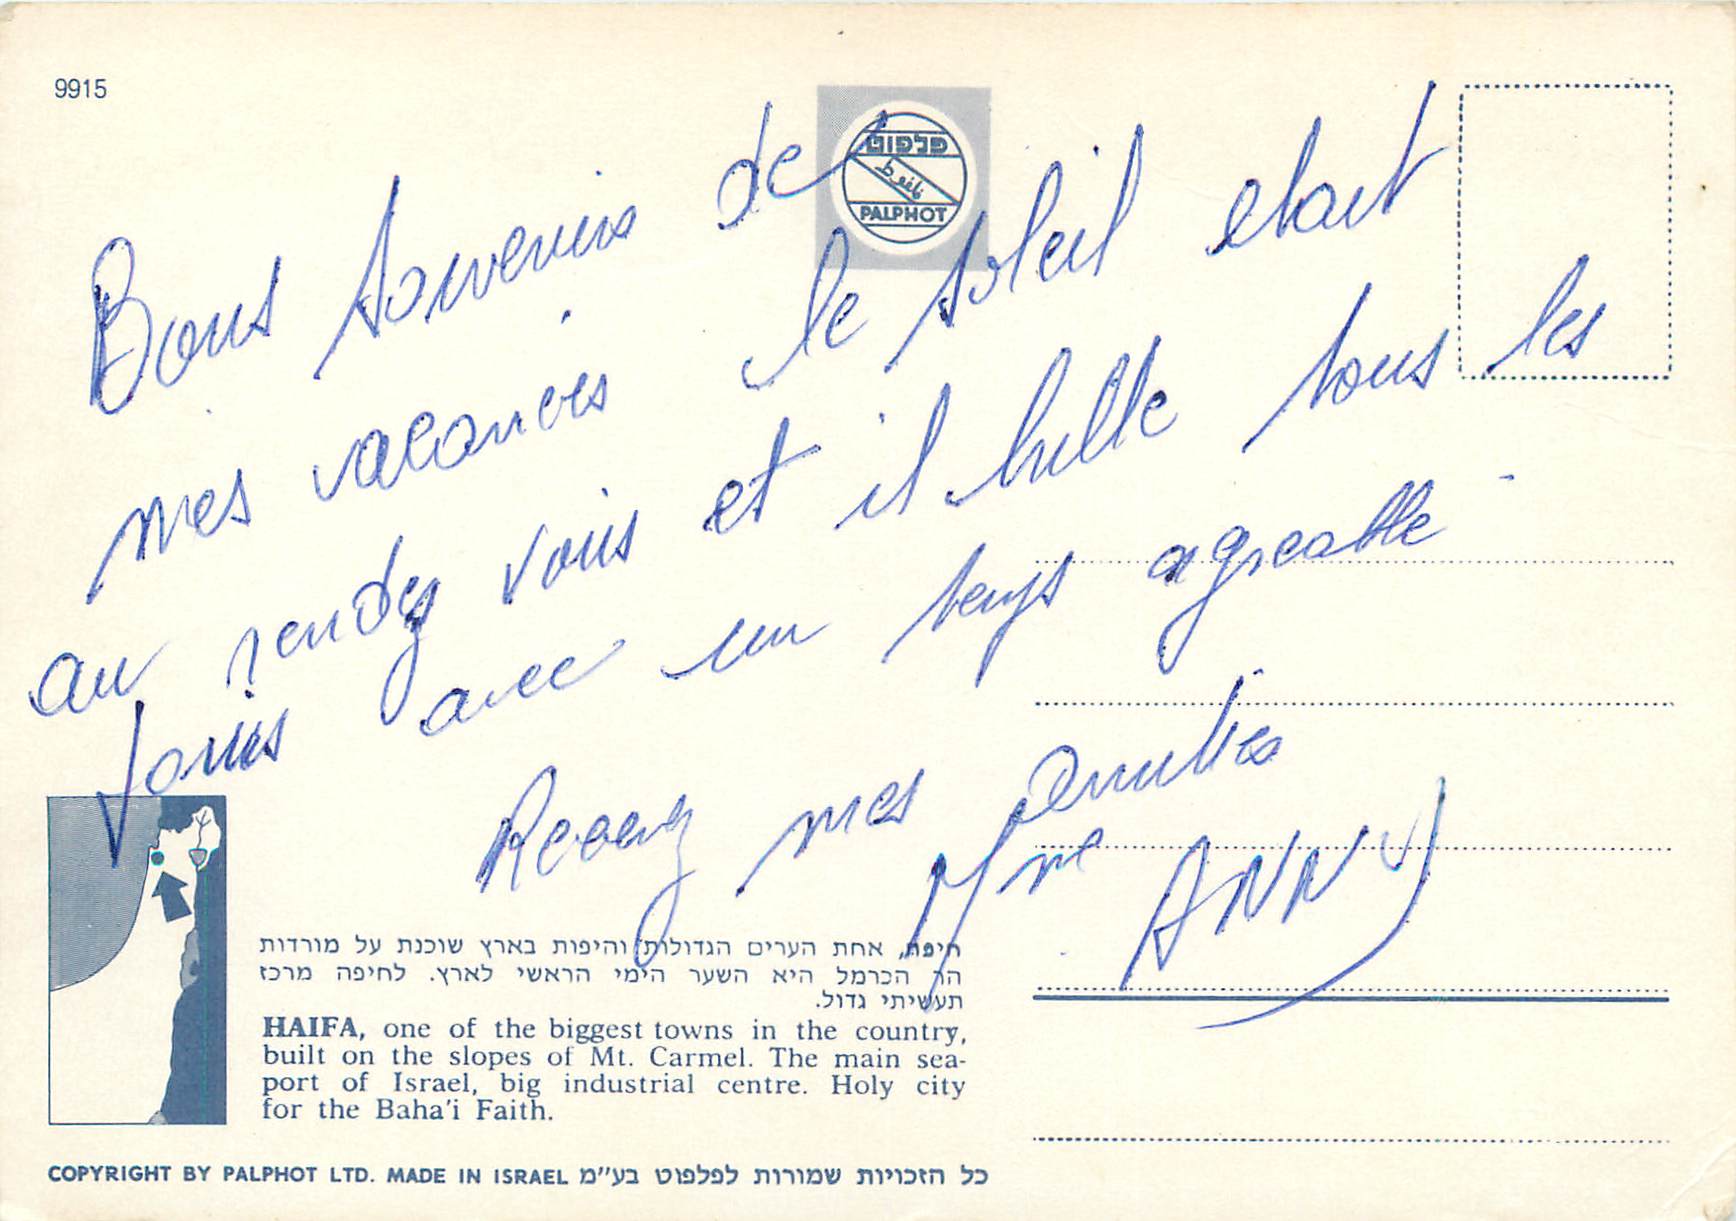 9915
פלפוט
PALPHOT
Bons Souvenirs de
mes vacances le soleil etait
au rendez vous et il brille tous les
jours avec un temps agreable
Recevez mes amities
Mme ANNY
חיפה, אחת הערים הגדולות והיפות בארץ שוכנת על מורדות
הר הכרמל היא השער הימי הראשי לארץ. לחיפה מרכז
תעשיתי גדול.
HAIFA, one of the biggest towns in the country,
built on the slopes of Mt. Carmel. The main sea-
port of Israel, big industrial centre. Holy city
for the Baha'i Faith.
COPYRIGHT BY PALPHOT LTD. MADE IN ISRAEL כל הזכויות שמורות לפלפוט בע"מ